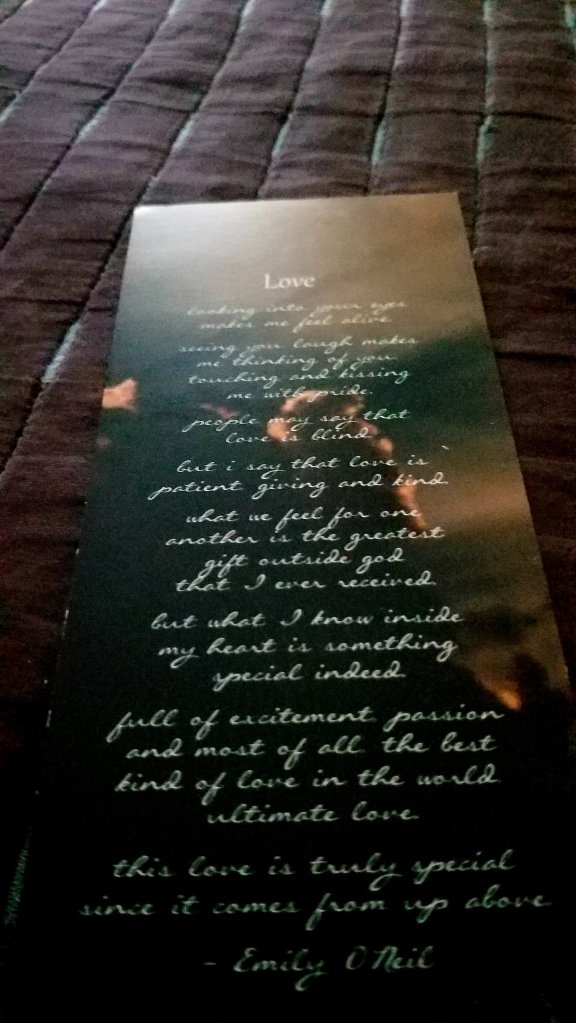 Love
looking into your eyes
makes me feel alive.
seeing you laugh makes
me thinking of you.
touching and kissing
me with pride.
people may say that
love is blind.
but i say that love is
patient, giving and kind.
what we feel for one
another is the greatest
gift outside god
that I ever received.
but what I know inside
my heart is something
special indeed.
full of excitement, passion
and most of all, the best
kind of love in the world.
ultimate love.
this love is truly special
since it comes from up above.
- Emily O'Neil